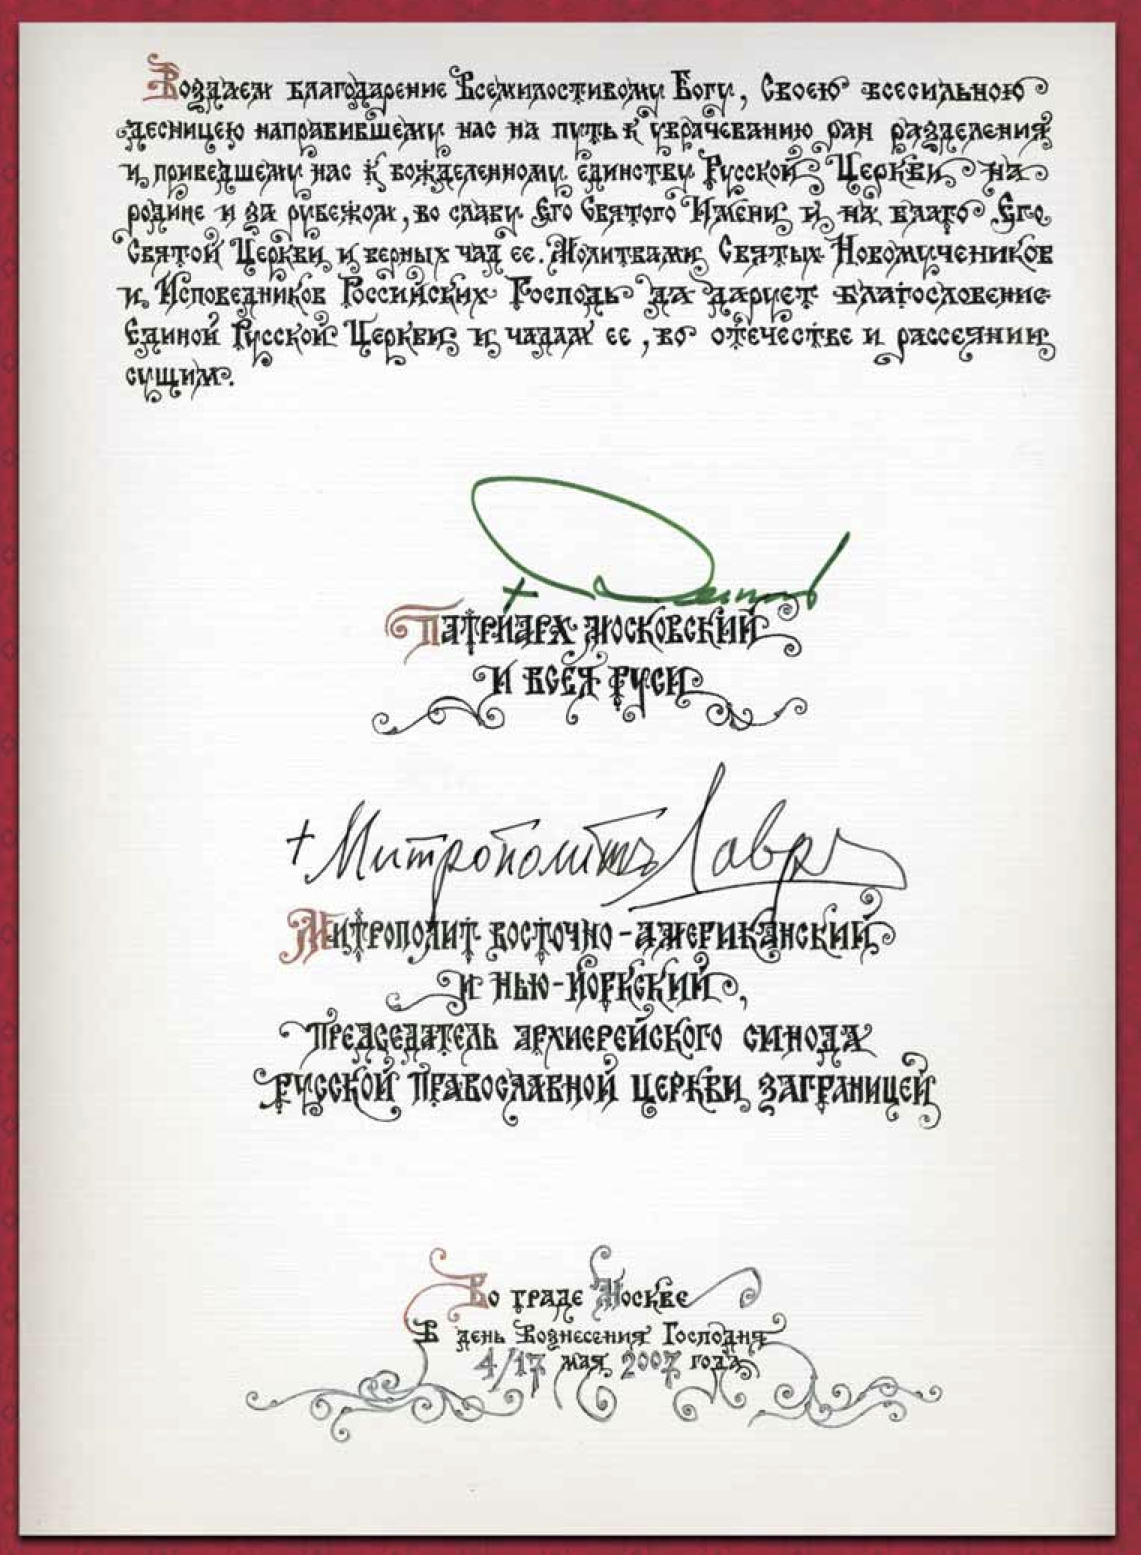 Воздаем благодарение Всемилостивому Богу, Своею всесильною
десницею направившему нас на путь к уврачеванию ран разделения
и приведшему нас к вожделенному единству Русской Церкви на
родине и за рубежом, во славу Его Святого Имени и на благо Его
Святой Церкви и верных чад ее. Молитвами Святых Новомучеников
и Исповедников Российских Господь да дарует благословение
Единой Русской Церкви и чадам ее, во отечестве и рассеянии
сущим.
+
Патриарх Московский
и всея Руси
+ Митрополитъ Лавръ
Митрополит Восточно-Американский
и Нью-Йоркский,
Председатель Архиерейского Синода
Русской Православной Церкви Заграницей
Во граде Москве
В день Вознесения Господня
4/17 мая 2007 года